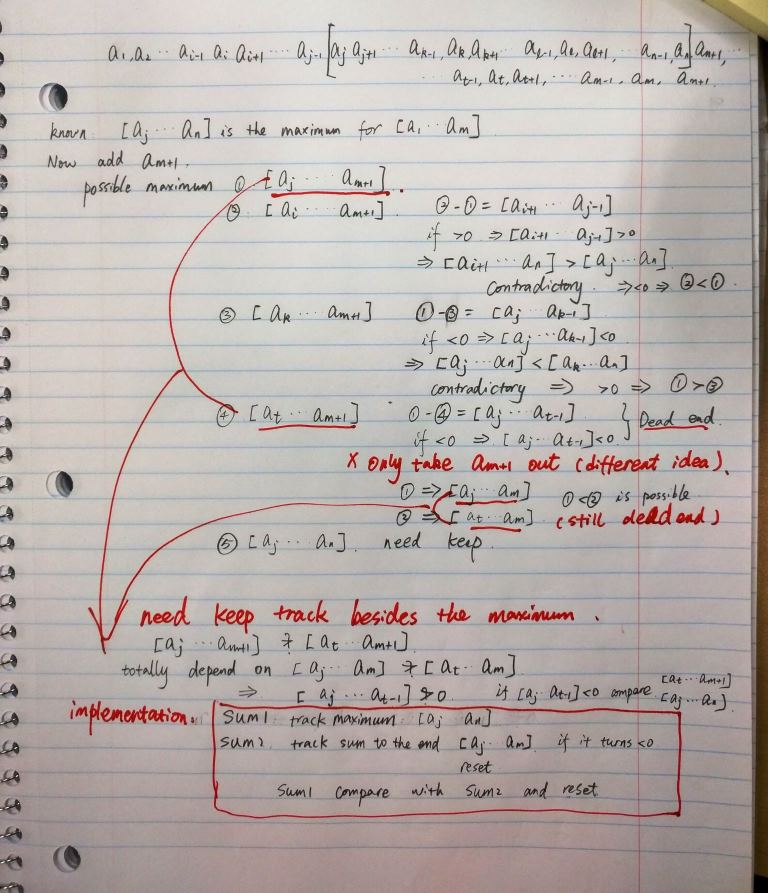 a1, a2 ... ai-1 ai ai+1 ... aj-1 [aj aj+1 ... ak-1, ak, ak+1 ... al-1, al, al+1, ... an-1, an] an+1, ...
... at-1, at, at+1, ... am-1, am, am+1
known [aj ... an] is the maximum for [a1 ... am]
Now add am+1.
possible maximum ① [aj ... am+1].
② [ai ... am+1] ②-① = [ai+1 ... aj-1]
if >0 ⇒ [ai+1 ... aj-1] >0
⇒ [ai+1 ... an] > [aj ... an].
contradictory. ⇒ <0 ⇒ ②<①
③ [ak ... am+1] ①-③ = [aj ... ak-1]
if <0 ⇒ [aj ... ak-1] <0
⇒ [aj ... an] < [ak ... an]
contradictory ⇒ >0 ⇒ ①>③
④ [at ... am+1] ①-④ = [aj ... at-1] } Dead end.
if <0 ⇒ [aj .. at-1] <0.
x only take am+1 out (different idea).
① ⇒ [aj ... am] ①<② is possible
② ⇒ [at ... am] (still dead end)
⑤ [aj ... an]. need keep.
need keep track besides the maximum.
[aj ... am+1] ≯ [at ... am+1]
totally depend on [aj .. am] ≯ [at .. am]
⇒ [aj ... at-1] ≯ 0. if [aj .. at-1] <0 compare [at ... am+1]
[aj ... an].
implementation.
Sum1 track maximum [aj an]
Sum2 track sum to the end [aj ... am] if it turns <0
reset
Sum1 compare with Sum2 and reset